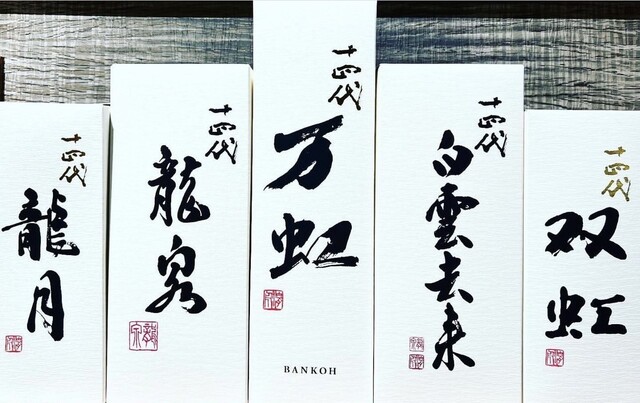 十四代
龍月
十四代
龍泉
十四代
万虹
BANKOH
十四代
白雲去来
十四代
双虹